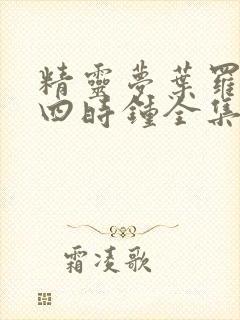 精靈夢葉羅
四時鐘全集
霜凌歌